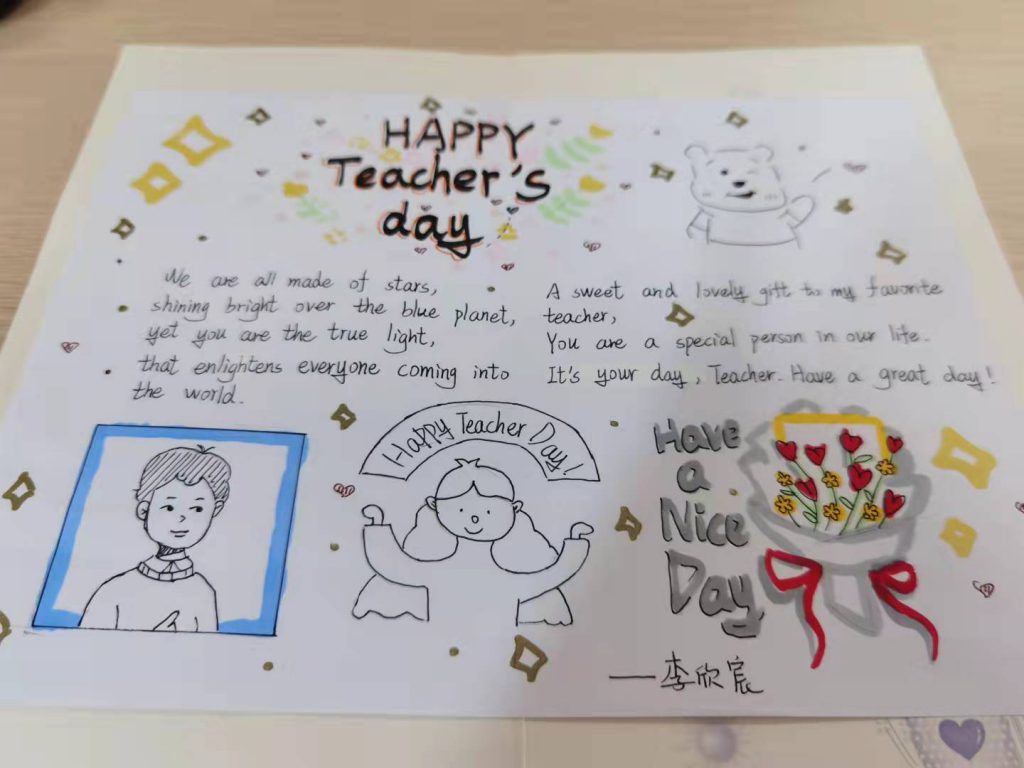 HAPPY
Teacher's
day
We are all made of stars,
shining bright over the blue planet,
yet you are the true light,
that enlightens everyone coming into
the world.
A sweet and lovely gift to my favorite
teacher,
You are a special person in our life.
It's your day, Teacher. Have a great day!
Happy Teacher Day!
Have
a
Nice
Day
——李欣宸